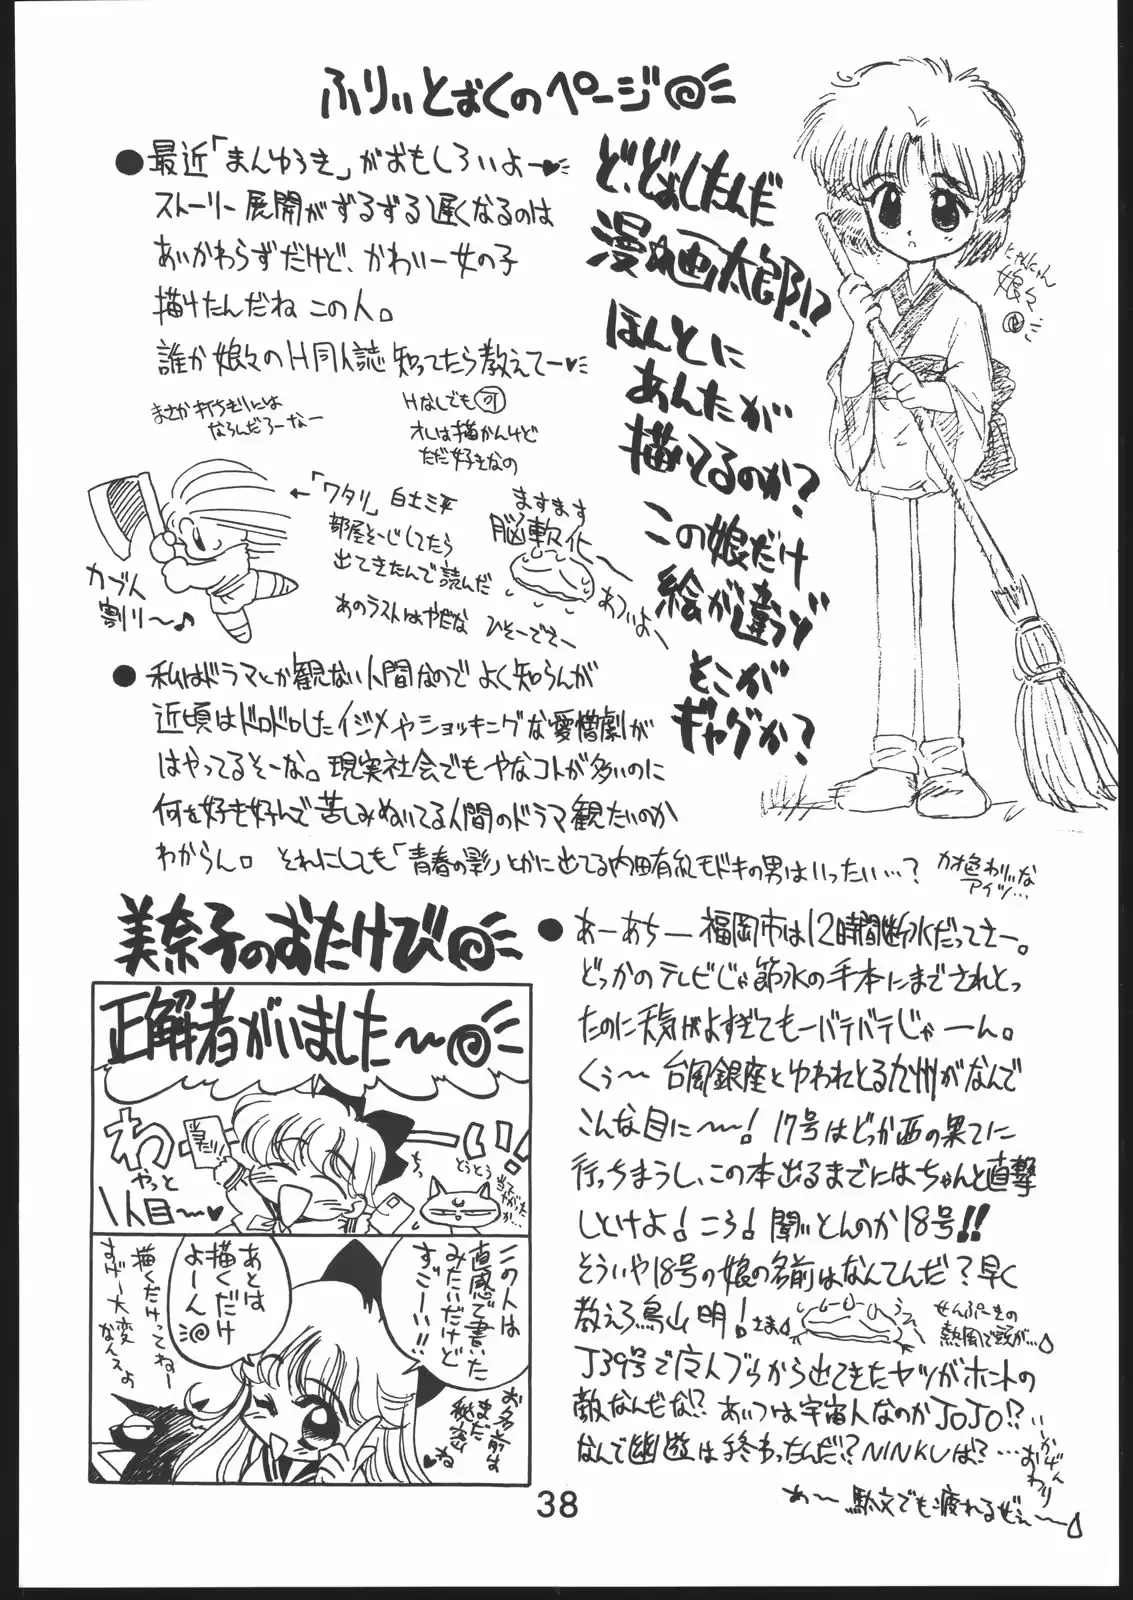 ふりぃとばくのページ
●最近「まんゆうき」がおもしろいよー
ストーリー展開がずるずる遅くなるのは
あいかわらずだけど、かわいー女の子
描けたんだね この人。
誰か娘々のH同人誌知ってたら教えてー
まさか打ちぎりには
ならんだろーなー
Hなしでも可
オレは描かんけど
ただ好きなの
ど、どぉしたんだ
漫☆画太郎!?
ほんとに
あんたが
描いてるのか?
この娘だけ
絵が違うぞ
そこが
ギャグか?
にゃんにゃん
娘々
カブト
割り〜♪
←「ワタリ」白土三平
部屋そーじしてたら
出てきたんで読んだ
あのラストはやだな ひそーでさー
ますます
脳軟化
あついよー
●私はドラマとか観ない人間なので よく知らんが
近頃はドロドロしたイジメやショッキングな愛憎劇が
はやってるそーな。現実社会でもやなコトが多いのに
何を好き好んで苦しみぬいてる人間のドラマ観たいのか
わからん。 それにしても「青春の影」とかに出てる内田有紀モドキの男はいったい…?
カオ色わりぃな
アイツ…
美奈子のおたけび
正解者がいました〜
わーい!
やっと
1人目〜♥
当たり
とうとう
この人は
直感で書いた
みたいだけど
すごーい!!
お名前は
まだ
秘密
ね
あとは
描くだけ
よーん
描くだけってねー
すげー大変
なんスよ
●あーあちー 福岡市は12時間断水だってさー。
どっかのテレビじゃ節水の手本にまでされとっ
たのに天気がよすぎてもーバテバテじゃーん。
くぅ〜 台風銀座とゆわれとる九州がなんで
こんな目に〜〜! 17号はどっか西の果てに
行っちまうし、この本出るまでにはちゃんと直撃
しといけよ!ころ!聞いとんのか18号!!
そういや18号の娘の名前はなんてんだ?早く
教えろ鳥山明!さま
せんぷーきの
熱風で頭が…
J39号で广人ブゥから出てきたヤツがホントの
敵なんだな!? あいつは宇宙人なのかJOJO!?
なんで幽遊は終わったんだ!? NINKUは?…
いかげん
おわり
あ〜 駄文でも疲れるぜぇ〜
38